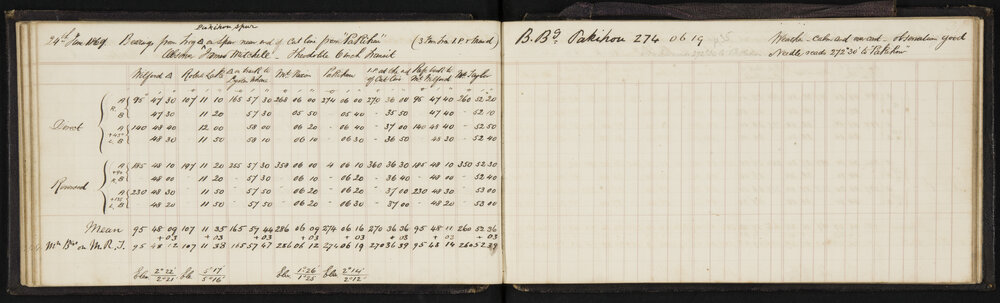 Pakihou Spur
24th June 1869. Bearings from Trig on Spur near end of Cut line from "Pakihou" (3 Tan Ina I.P. & Mend)
Observer "James Mitchell" - Theodolite 6 inch Transit
Milford Rolph Lake on back to Mt. Pakihou I.P. at the end Flag back to Mt Taylor
of Cut Line Mt Milford
Direct A 95° 47 30 107 11 10 165 57 30 268 06 00 274 06 00 270 36 00 95 47 40 260 52 20
B 47 30 11 20 57 30 05 50 05 40 - 35 50 47 40 - 52 10
A 140 48 40 12 00 58 00 06 20 - 06 40 - 37 00 140 48 40 - 52 50
B 48 30 11 50 58 10 06 10 - 06 30 - 36 50 48 30 - 52 40
Reversed A 185 48 10 197 11 20 255 57 30 358 06 00 4 06 10 360 36 30 185 48 10 350 52 30
B 48 00 - 11 20 - 57 30 - 06 10 - 06 20 - 36 40 - 48 00 - 52 40
A 230 48 30 - 11 50 - 57 50 - 06 20 - 06 20 - 37 00 230 48 30 - 53 00
B 48 20 - 11 50 - 57 50 - 06 20 - 06 30 - 37 00 - 48 20 - 53 00
Mean 95 48 09 107 11 35 165 57 44 286 06 09 274 06 16 270 36 36 95 48 11 260 52 36
+ 03 + 03 + 03 + 03 + 03 + 03 + 03 + 03
Mn Bgs on M.R.T. 95 48 12 107 11 38 165 57 47 286 06 12 274 06 19 270 36 39 95 48 14 260 52 39
Elev 2° 22' Ele 5° 17' Elev 1° 26' Elev 2° 14'
2° 21' 5° 16' 1° 25' 2° 12'
B. Bg. Pakihou 274 06 19
Weather - Calm and overcast - Observation good
Needle reads 272° 30' to "Pakihou"